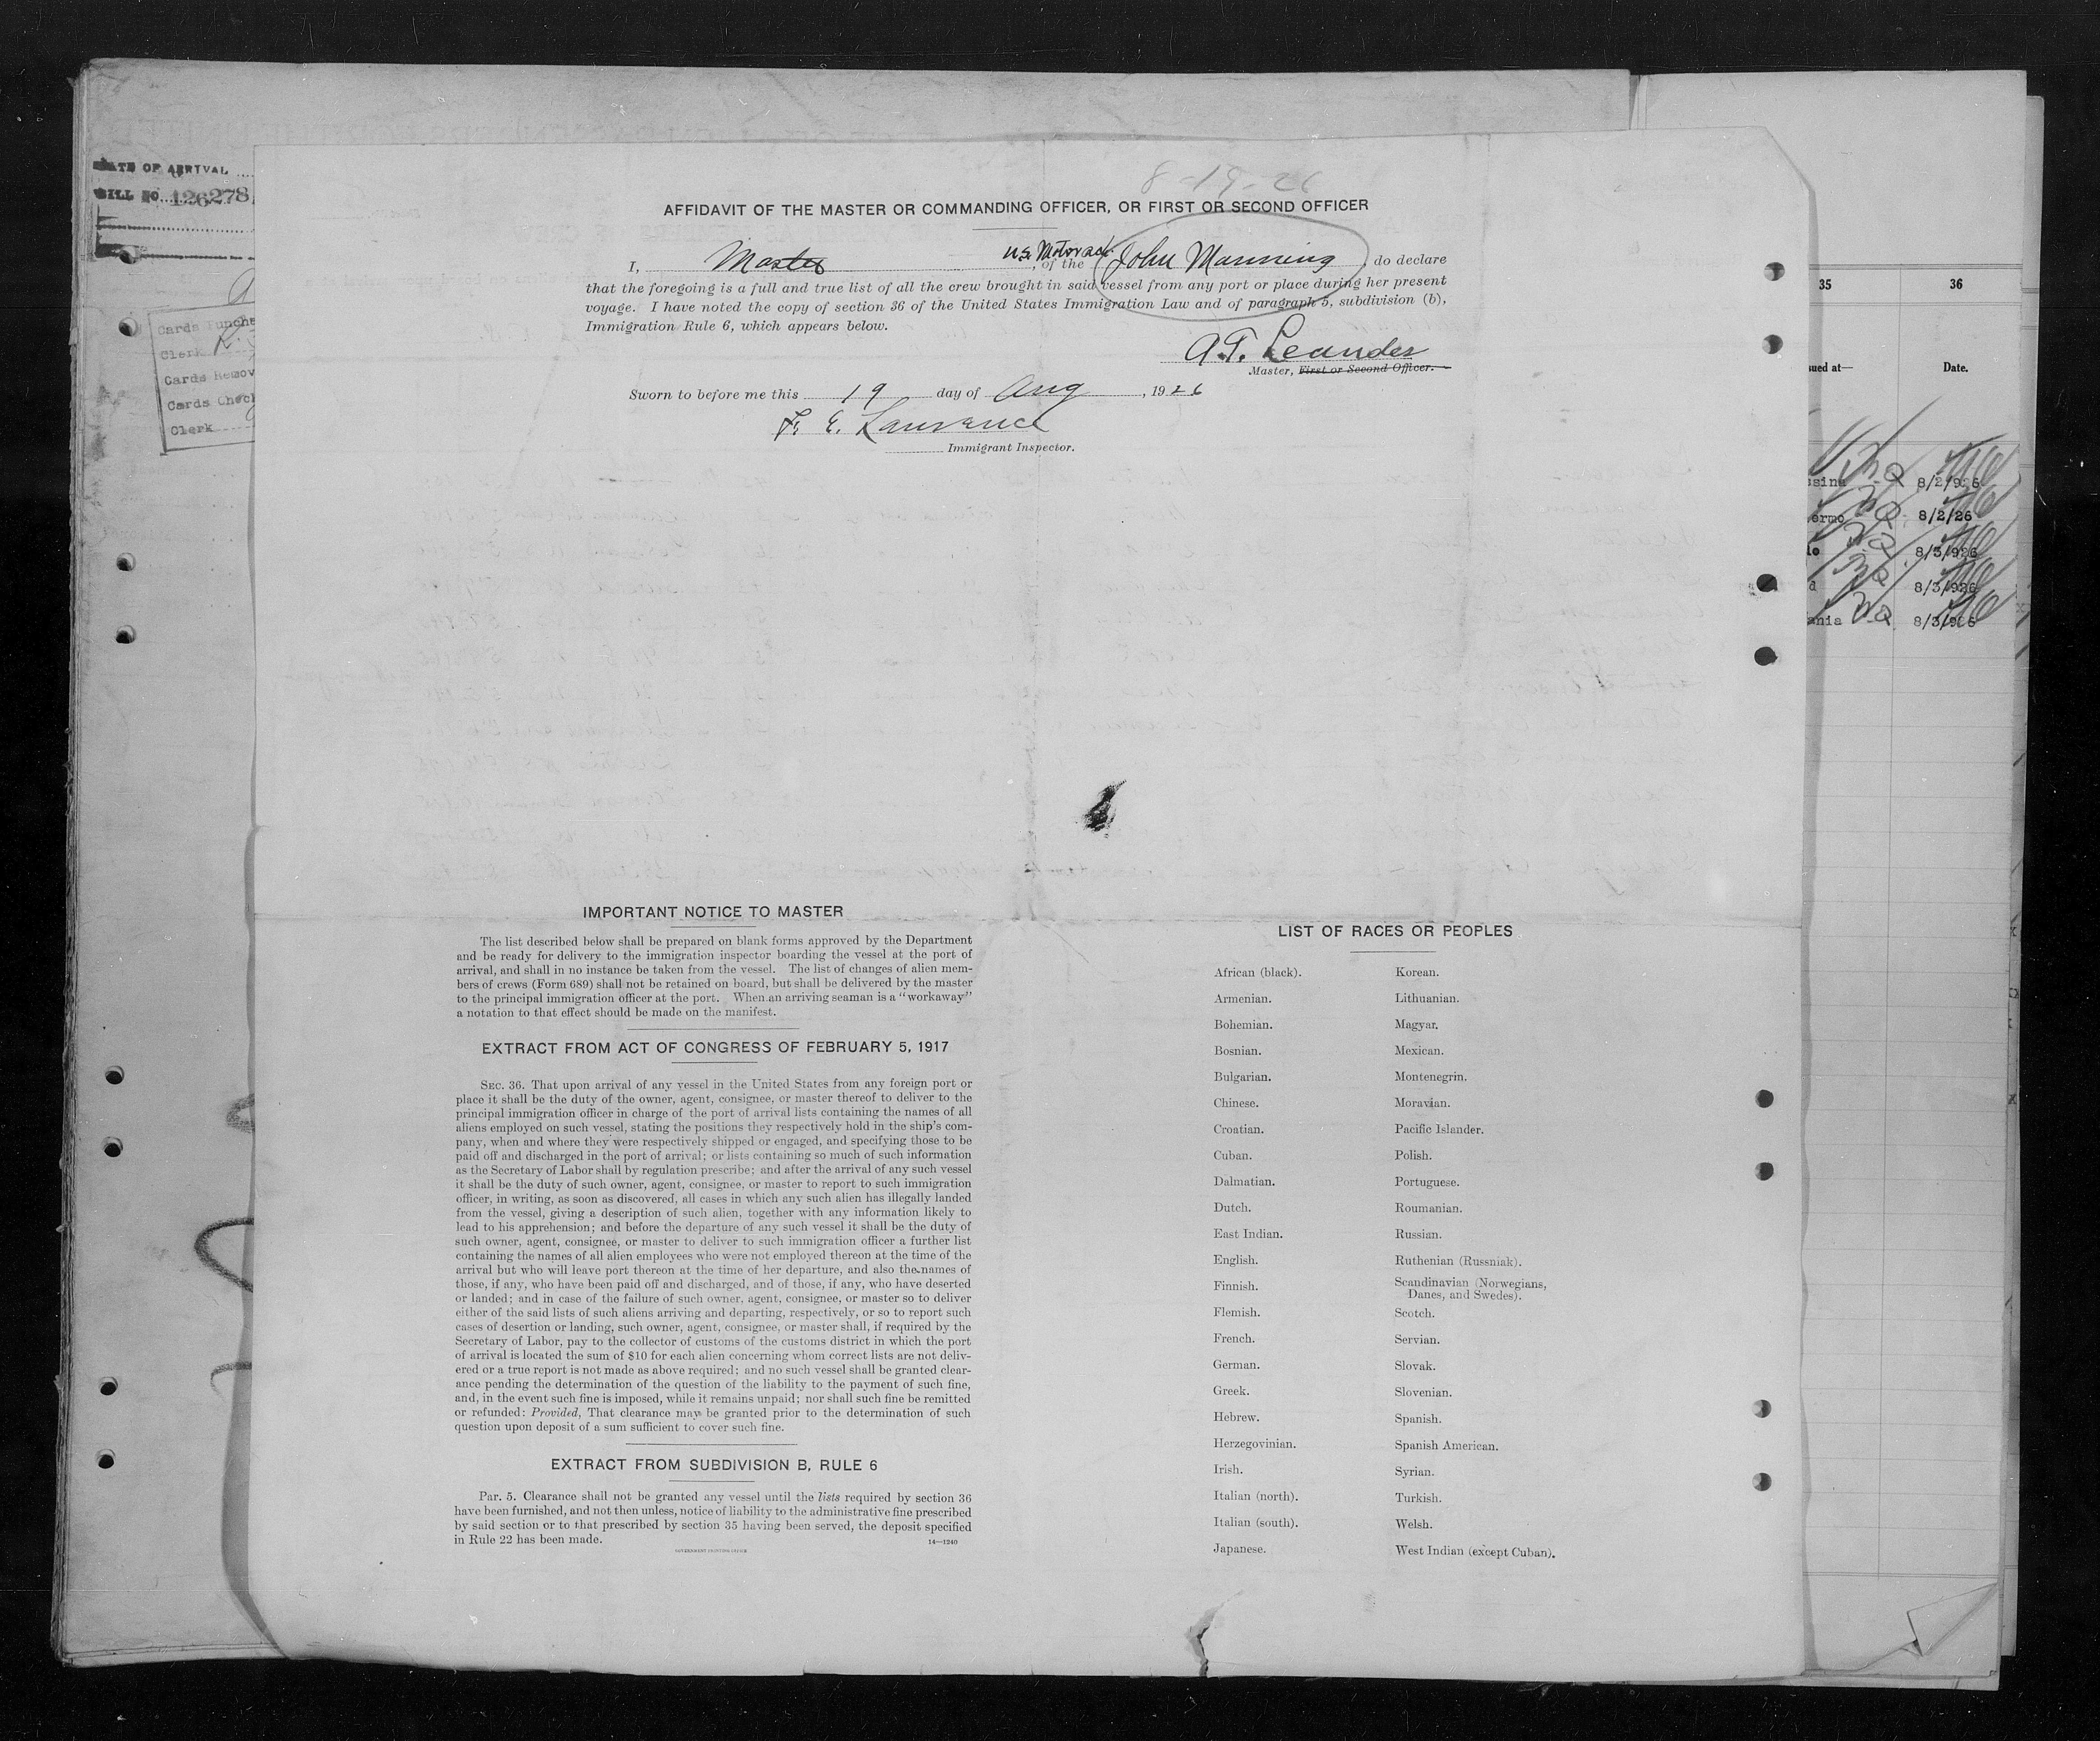 DATE OF ARRIVAL
BILL NO. 126278
Cards Punche
Clerk
Cards Remov
Cards Check
Clerk
8-19-26
AFFIDAVIT OF THE MASTER OR COMMANDING OFFICER, OR FIRST OR SECOND OFFICER
I, Master, of the U.S. Motor John Manning, do declare
that the foregoing is a full and true list of all the crew brought in said vessel from any port or place during her present
voyage. I have noted the copy of section 36 of the United States Immigration Law and of paragraph 5, subdivision (b),
Immigration Rule 6, which appears below.
A.T. Leander
Master, First or Second Officer.
Sworn to before me this 19 day of Aug, 1926
F. E. Lawrence
Immigrant Inspector.
IMPORTANT NOTICE TO MASTER
The list described below shall be prepared on blank forms approved by the Department
and be ready for delivery to the immigration inspector boarding the vessel at the port of
arrival, and shall in no instance be taken from the vessel. The list of changes of alien mem-
bers of crews (Form 689) shall not be retained on board, but shall be delivered by the master
to the principal immigration officer at the port. When an arriving seaman is a "workaway"
a notation to that effect should be made on the manifest.
EXTRACT FROM ACT OF CONGRESS OF FEBRUARY 5, 1917
SEC. 36. That upon arrival of any vessel in the United States from any foreign port or
place it shall be the duty of the owner, agent, consignee, or master thereof to deliver to the
principal immigration officer in charge of the port of arrival lists containing the names of all
aliens employed on such vessel, stating the positions they respectively hold in the ship's com-
pany, when and where they were respectively shipped or engaged, and specifying those to be
paid off and discharged in the port of arrival; or lists containing so much of such information
as the Secretary of Labor shall by regulation prescribe; and after the arrival of any such vessel
it shall be the duty of such owner, agent, consignee, or master to report to such immigration
officer, in writing, as soon as discovered, all cases in which any such alien has illegally landed
from the vessel, giving a description of such alien, together with any information likely to
lead to his apprehension; and before the departure of any such vessel it shall be the duty of
such owner, agent, consignee, or master to deliver to such immigration officer a further list
containing the names of all alien employees who were not employed thereon at the time of the
arrival but who will leave port thereon at the time of her departure, and also the names of
those, if any, who have been paid off and discharged, and of those, if any, who have deserted
or landed; and in case of the failure of such owner, agent, consignee, or master so to deliver
either of the said lists of such aliens arriving and departing, respectively, or so to report such
cases of desertion or landing, such owner, agent, consignee, or master shall, if required by the
Secretary of Labor, pay to the collector of customs of the customs district in which the port
of arrival is located the sum of $10 for each alien concerning whom correct lists are not deliv-
ered or a true report is not made as above required; and no such vessel shall be granted clear-
ance pending the determination of the question of the liability to the payment of such fine,
and, in the event such fine is imposed, while it remains unpaid; nor shall such fine be remitted
or refunded: Provided, That clearance may be granted prior to the determination of such
question upon deposit of a sum sufficient to cover such fine.
EXTRACT FROM SUBDIVISION B, RULE 6
Par. 5. Clearance shall not be granted any vessel until the lists required by section 36
have been furnished, and not then unless, notice of liability to the administrative fine prescribed
by said section or to that prescribed by section 35 having been served, the deposit specified
in Rule 22 has been made.
GOVERNMENT PRINTING OFFICE 14—1240
LIST OF RACES OR PEOPLES
African (black).
Armenian.
Bohemian.
Bosnian.
Bulgarian.
Chinese.
Croatian.
Cuban.
Dalmatian.
Dutch.
East Indian.
English.
Finnish.
Flemish.
French.
German.
Greek.
Hebrew.
Herzegovinian.
Irish.
Italian (north).
Italian (south).
Japanese.
Korean.
Lithuanian.
Magyar.
Mexican.
Montenegrin.
Moravian.
Pacific Islander.
Polish.
Portuguese.
Roumanian.
Russian.
Ruthenian (Russniak).
Scandinavian (Norwegians,
Danes, and Swedes).
Scotch.
Servian.
Slovak.
Slovenian.
Spanish.
Spanish American.
Syrian.
Turkish.
Welsh.
West Indian (except Cuban).
35 36
sued at— Date.
ssina 8/2/926
ermo 8/2/26
lo 8/3/926
d 8/3/926
ania 8/3/926